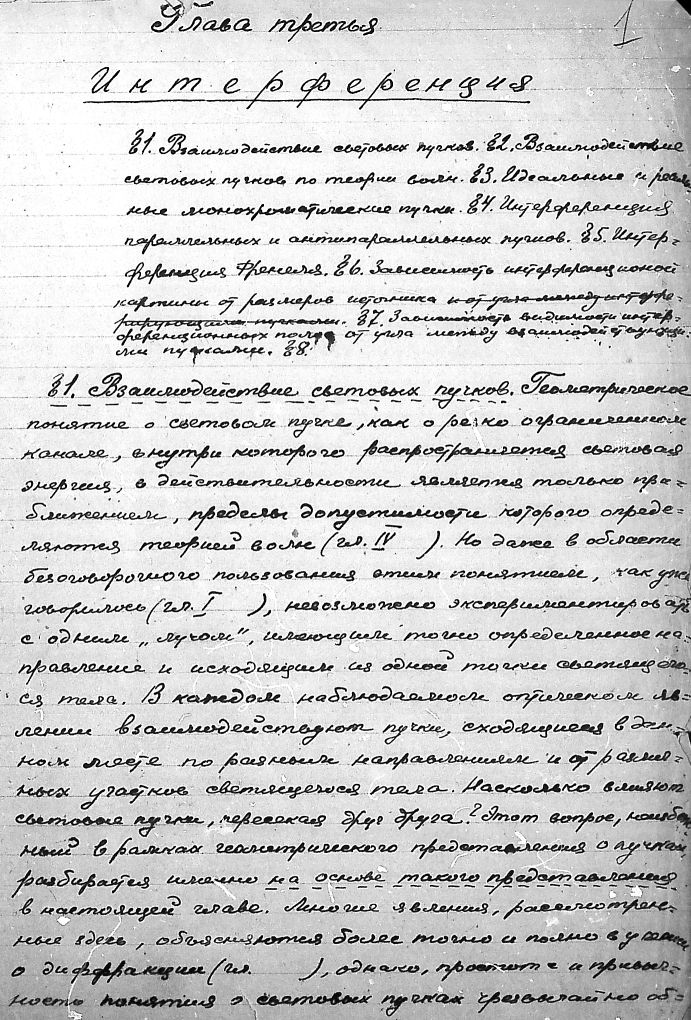 Глава третья
1
Интерференция
§1. Взаимодействие световых пучков. §2. Взаимодействие
световых пучков по теории волн. §3. Идеальные и реаль-
ные монохроматические пучки. §4. Интерференция
параллельных и антипараллельных пучков. §5. Интер-
ференция Френеля. §6. Зависимость интерференционой
картины от размеров источника и от угла между интерфе-
рирующими пучками. §7. Зависимость видимости интер-
ференционных полос от угла между взаимодействующи-
ми пучками. §8.
§1. Взаимодействие световых пучков. Геометрическое
понятие о световом пучке, как о резко ограниченном
канале, внутри которого распространяется световая
энергия, в действительности является только при-
ближением, пределы допустимости которого опреде-
ляются теорией волн (гл. IV ). Но даже в области
безоговорочного пользования этим понятием, как уже
говорилось (гл. I ), невозможно экспериментировать
с одним „лучом", имеющим точно определенное на-
правление и исходящим из одной точки светящего-
ся тела. В каждом наблюдаемом оптическом яв-
лении взаимодействуют пучки, сходящиеся в дан-
ном месте по разным направлениям и от различ-
ных участков светящегося тела. Насколько влияют
световые пучки, пересекая друг друга? Этот вопрос,
ный в рамках геометрического представления о пучках,
разбирается именно на основе такого представления
в настоящей главе. Многие явления, рассмотрен-
ные здесь, объясняются более точно и полно в учении
о диффракции (гл. ), однако, простота и привыч-
ность понятия о световых пучках чрезвычайно об-